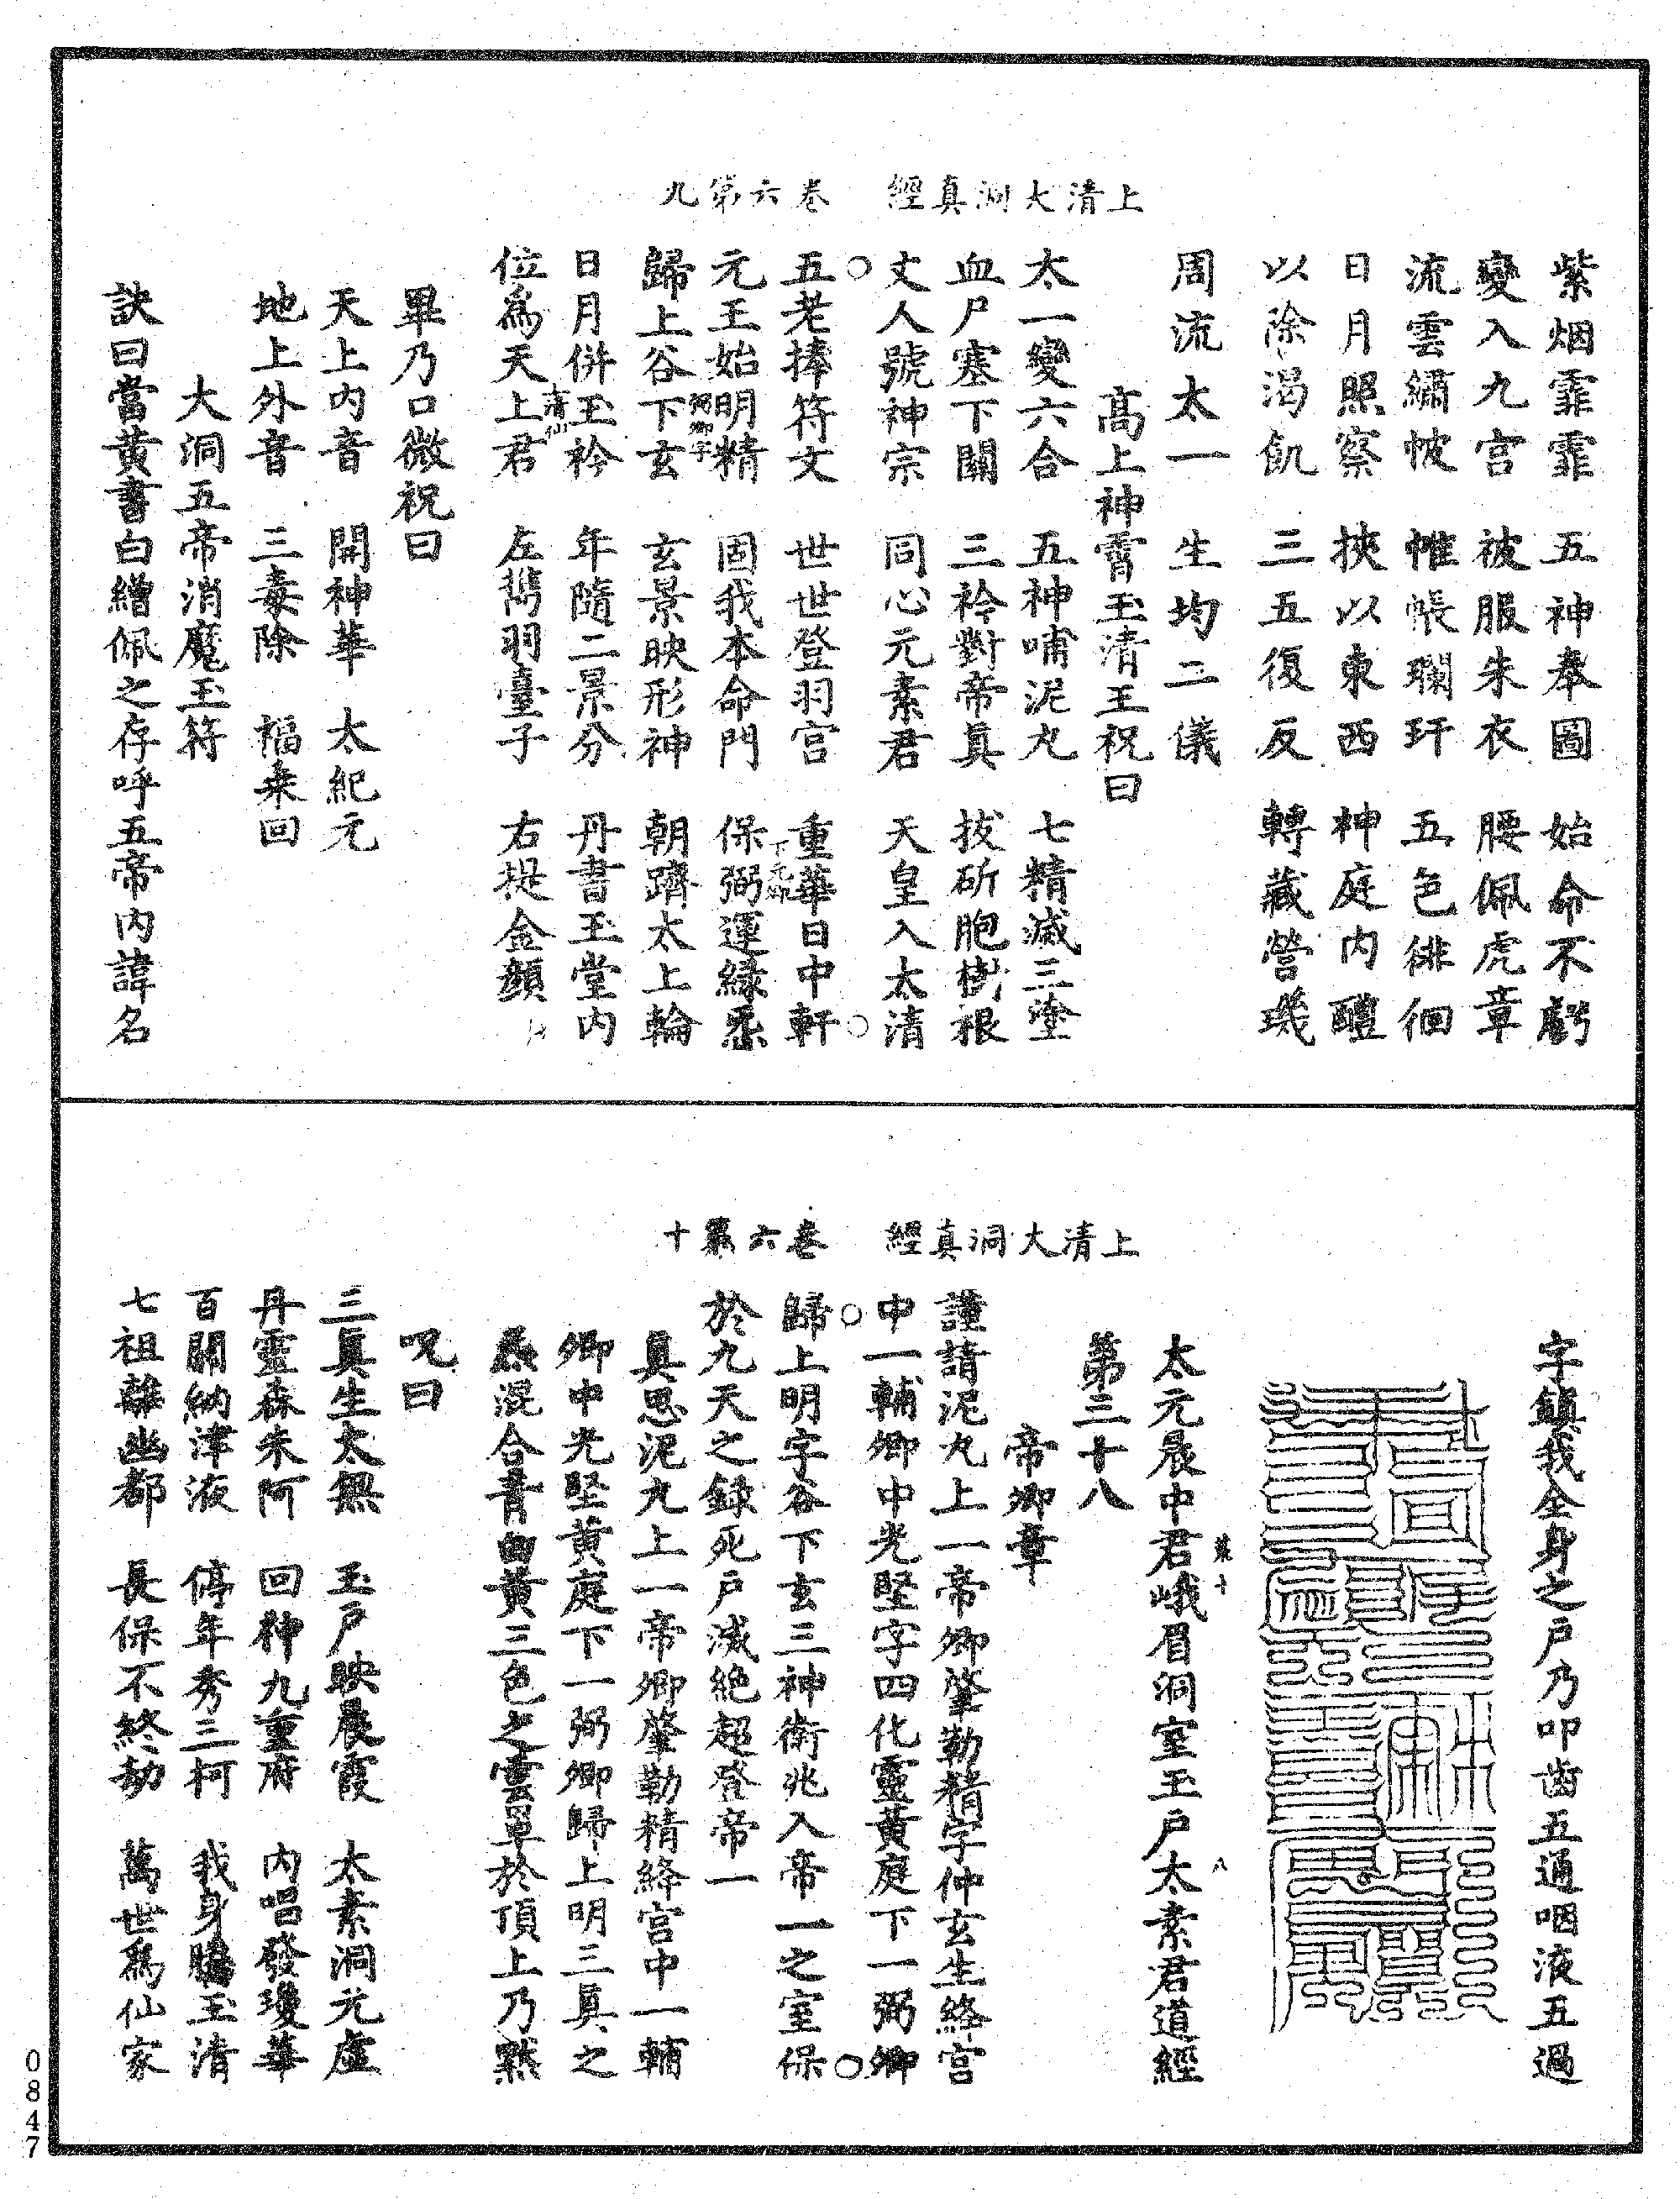 上清大洞真經　卷六第九
紫烟霏霏　五神奉圖　始命不虧
變入九宮　被服朱衣　腰佩虎章
流雲繡帔　帷帳斕玕　五色徘徊
日月照察　挾以東西　神庭內醴
以除渴飢　三五復反　轉藏營璣
周流太一　生均二儀
高上神霄玉清王祝曰
太一變六合　五神哺泥丸　七精滅三塗
血尸塞下關　三衿對帝真　拔斫胞樹根
丈人號神宗　同心元素君　天皇入太清
五老捧符文　世世登羽宮　重華日中軒
元王始明精　固我本命門　保弼運緑炁
歸上谷下玄　玄景映形神　朝躋太上輪
弼卿字
日月併玉衿　年隨二景分　丹書玉堂內
位爲天上君　左攜羽臺子　右提金顏
上清仙
畢乃口微祝曰
天上內音　開神華　太紀元
地上外音　三毒除　福来回
大洞五帝消魔玉符
訣曰當黃書白繒佩之存呼五帝內諱名
上清大洞真經　卷六第十
字鎮我全身之戶乃叩齒五通咽液五過
太元晨中君峨眉洞室玉戶太素君道經
第三十八
帝卿章
謹請泥丸上一帝卿肇勒精字仲玄生絳宮
中一輔卿中光堅字四化靈黃庭下一弼卿
歸上明字谷下玄三神衛兆入帝一之室保
於九天之錄死戶滅絕超登帝一
真思泥丸上一帝卿肇勒精絳宮中一輔
卿中光堅黃庭下一弼卿歸上明三真之
炁混合青白黃三色之雲罩於頂上乃默
呪曰
三真生太無　玉戶映晨霞　太素洞元虛
丹靈森朱阿　回神九重府　內唱發瓊華
百關納津液　停年秀三柯　我身騰玉清
七祖離幽都　長保不終劫　萬世爲仙家
0847